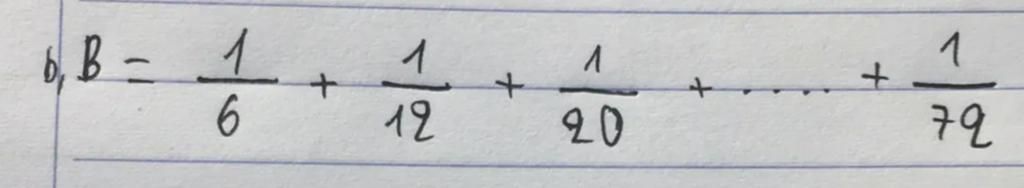 b, B = 1/6 + 1/12 + 1/20 + ..... + 1/72